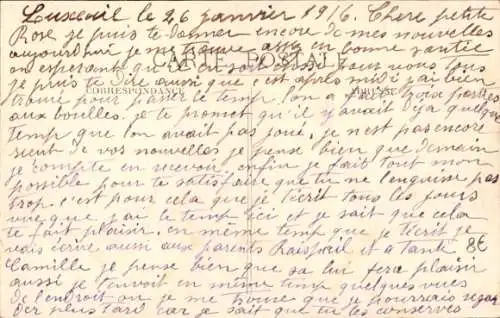 Luxeuil le 26 janvier 1916. Chere petite
Rose je puis te donner encore de mes nouvelles
aujourd'hui je me trouve assez en bonne santée
en esperant que de vous tous
CARTE POSTALE
je puis te dire aussi que c'est après midi j'ai bien
CORRESPONDANCE
trouvé pour passer le temp. l'on a fait trois parties
aux boulles. je te promet qu'il y avait déja quelque
temp que l'on avait pas joué, je n'est pas encore
de vos nouvelles je pense bien que demain
je compte en recevoir. enfin je fais tout mon
possible pour te satisfaire que tu ne l'enguise pas
trop. c'est pour cela que je t'écrit tous les jours
vue que j'ai le temp ici et je sait que cela
te fait plaisir. en même temp que je t'écrit je
vais écrire aussi aux parents et a Tante 8€
Camille je pense bien que sa lui sera plaisir
aussi je t'envoit en même temp quelques vues
de l'endroit ou je me trouve que je pourrais
der plus tard car je sait que tu les conserves